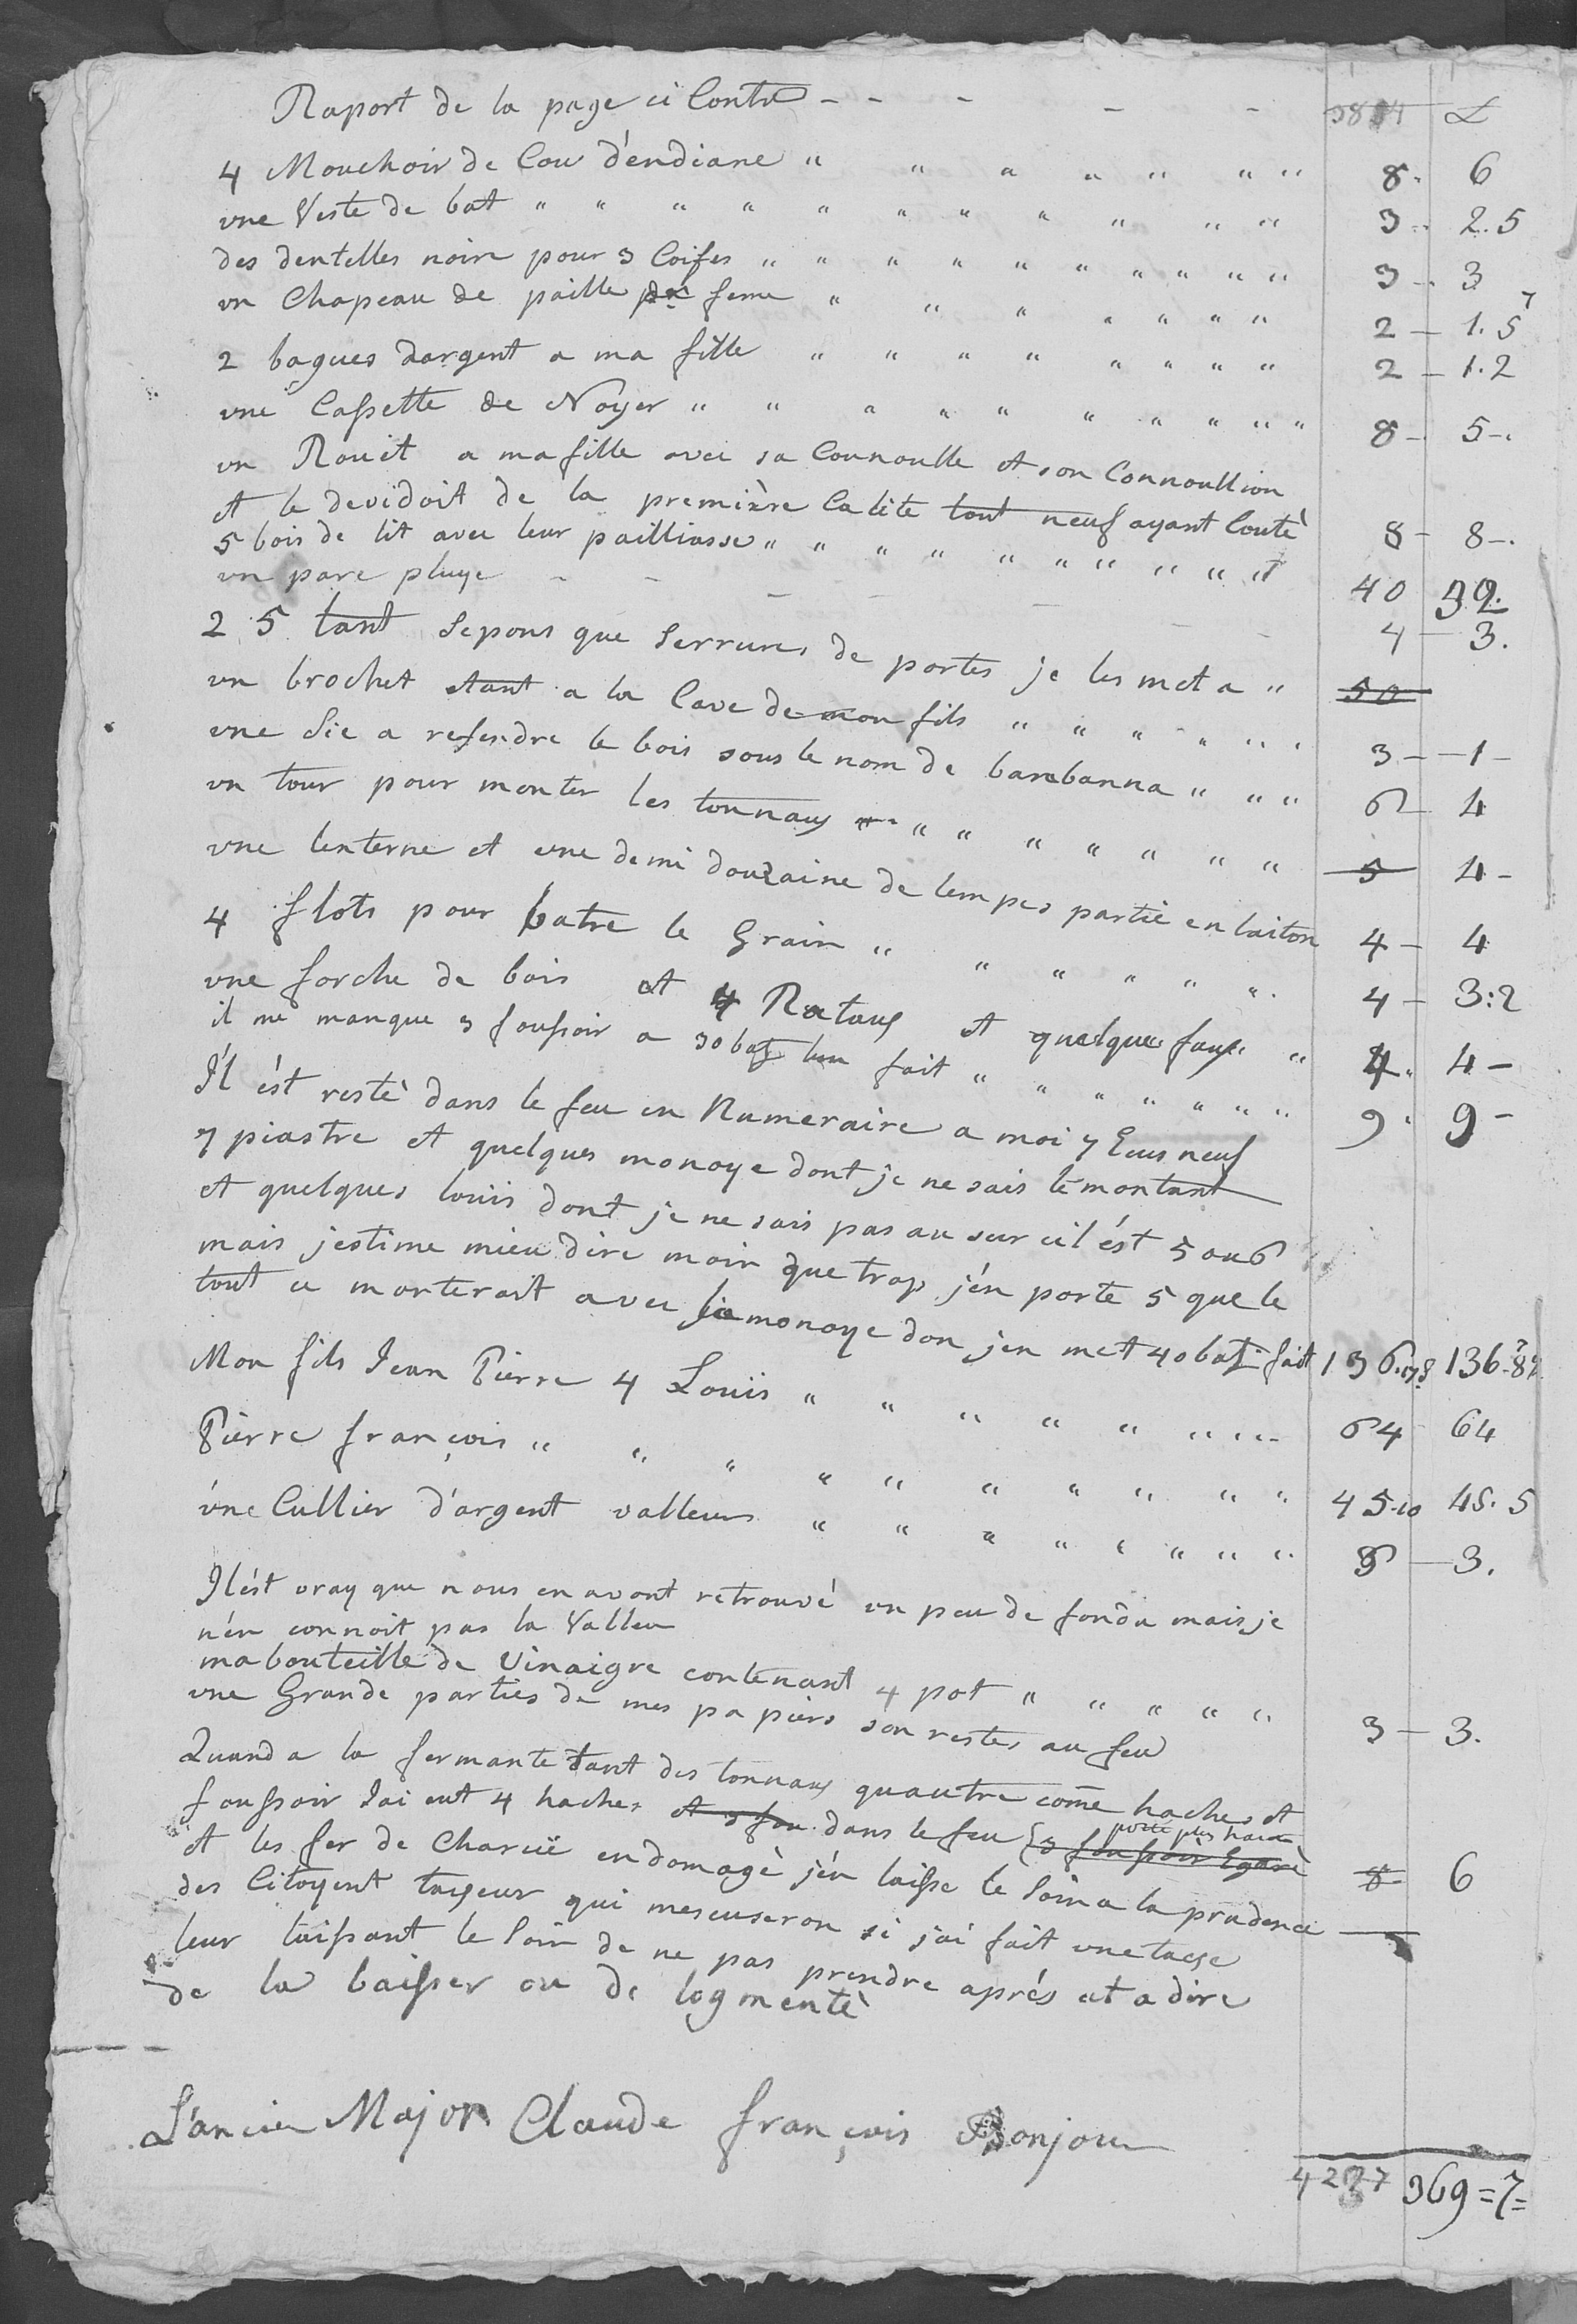 Raport de la page ci Contre - - - - - L
4 Mouchoir de Cou d'endiane " " " " " " " 8 - 6
une Veste de bat " " " " " " " " " " " 3 - 2.5
des dentelles noire pour 3 Coifes " " " " " " " " " " 3 - 3
un Chapeau de paille feme " " " " " " " 2 - 1.5
2 bagues dargent a ma fille " " " " " " " " 2 - 1.2
une Cassette de Noyer " " " " " " " " " " 8 - 5 -
un Rouit a ma fille avec sa Counoulle et son Connoullion
et le devidoit de la première Calite tout neuf ayant Coutè 8 - 8 -.
5 bois de lit avec leur pailliasse " " " " " " " " " " 40 32.
un pare pluye - - - - - - - 4 - 3.
25 tant Sepons que Serrures de portes je les met a " 50
un brochet etant a la Cave de mon fils " " " " " " 3 - 1 -
une Sie a refendre le bois sous le nom de barabanna " " " 6 - 4
un tour pour monter les tonnaux " " " " " " " " 5 4 -
une lenterne et une demi douzaine de lempes partie en laiton 4 - 4
4 flots pour batre le Grain " " " " " " 4 - 3:2
une forche de bois et 4 Rataux et quelque faux " 4. 4 -
il me manque 3 foussoir a 30 batz lun fait " " " " " " " 9. 9 -
Il ést restè dans le feu en Numeraire a moi 7 Ecus neuf
7 piastre et quelques monoye dont je ne sais le montant
et quelques louis dont je ne sais pas au sur cil ést 5 ou 6
mais jestime mieu dire moin que trop j'én porte 5 que le
tout ce monterait avec la monoye don jen met 40 batz fait 136. 136-
Mon fils Jean Pierre 4 Louis " " " " " " " " 64 64
Pierre françois " " " " " " " " " " 45.10 45.5
úne Cullier d'argent valleur " " " " " " " " - 3.
Il ést vray que nous en avont retrouvé un peu de fondu mais je
nén connoit pas la Valleur
ma bouteille de Vinaigre contenant 4 pot " " " " " 3 - 3.
une Grande parties de mes papiers son restes au feu
Quand a la fermante tant des tonnaux quautre come haches et
foussoir Jai eut 4 haches et 3 fou dans le feu { 3 foussoir Egarè porté plus haut 8 6
et les fer de Charuë endomagè jén laisse le Soin a la prudence
des Citoyent taxeur qui mescuseron si jai fait une taxe
leur laissant le Soin de ne pas prendre aprés cet a dire
de la baisser ou de logmentè
L'ancien Major Claude françois Bonjour
369=7=